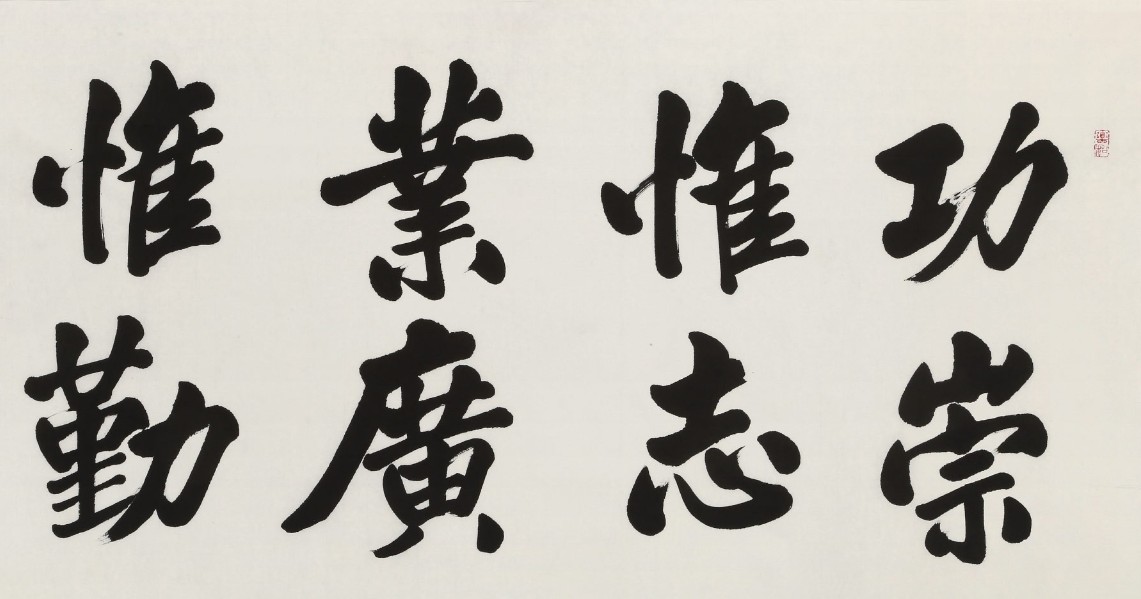 功崇
惟志
業廣
惟勤